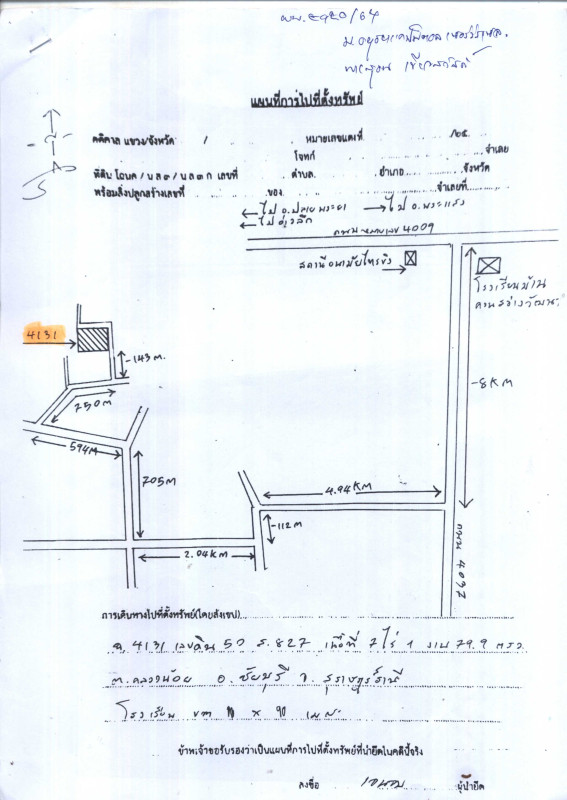 ผบ. ๔๔๒๐/64
แผนที่การไปที่ตั้งทรัพย์
คดีศาล แขวง/จังหวัด / หมายเลขแดงที่ /๒๕
โจทก์ จำเลย
ที่ดิน โฉนด / น ส ๓ / น ส ๓ ก เลขที่ ตำบล อำเภอ จังหวัด
พร้อมสิ่งปลูกสร้างเลขที่ ของ จำเลยที่
ไป อ.ปลายพระยา ไป อ.พระแสง
ไป อ่าวลึก
ถนน หมายเลข 4009
สถานีอนามัยไทรขึง
โรงเรียนบ้าน
ควนสว่างวัฒนา
4131
143 m.
8 KM
250 m
594 M
205 m
4.94 KM
112 m
2.04 KM
ถนน 4037
การเดินทางไปที่ตั้งทรัพย์(โดยสังเขป)
ฉ. 4131 เลขดิน 50 ส. 827 เนื้อที่ 7 ไร่ 1 งาน 79.9 ตรว
ต.คลองน้อย อ. ชัยบุรี จ. สุราษฎร์ธานี
โรงเรียน x 90
ข้าพเจ้าขอรับรองว่าเป็นแผนที่การไปที่ตั้งทรัพย์ที่นำยึดในคดีนี้จริง
ลงชื่อ ผู้นำยึด